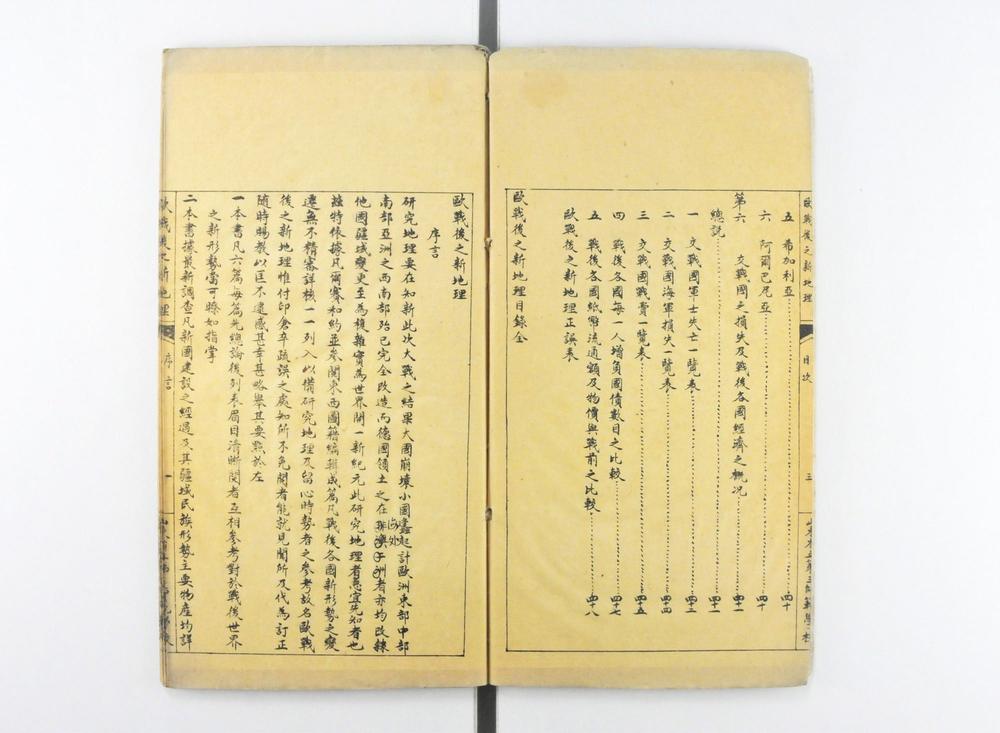 歐戰後之新地理
目次
三
五 希加利亞 四十
六 阿爾巴尼亞 四十
第六 交戰國之損失及戰後各國經濟之概况
總説 四十一
一 交戰國軍士失亡一覽表 四十二
二 交戰國海軍損失一覽表 四十四
三 交戰國戰費一覽表 四十五
四 戰後各國每一人增負國債數目之比較 四十七
五 戰後各國紙幣流通額及物價與戰前之比較 四十八
歐戰後之新地理正誤表
歐戰後之新地理目錄全
歐戰後之新地理
序言
研究地理要在知新此次大戰之結果大國崩壞小國蠭起計歐洲東部中部
南部亞洲之西南部殆已完全改造而德國領土之在海外者亦均改隸
他國疆域變更至為複雜實為世界開一新紀元此研究地理者急宜先知者也
茲特依據凡爾賽和約並參閱東西圖籍編輯成篇凡戰後各國新形勢之變
遷無不精審詳核一一列入以備研究地理及留心時勢者之參考故名歐戰
後之新地理惟付印倉卒疏誤之處知所不免閱者能就見聞所及代為訂正
隨時賜教以匡不逮感甚幸甚略舉其要點於左
一本書凡六篇每篇先總論後列表眉目清晰閱者互相參考對於戰後世界
之新形勢當可瞭如指掌
二本書據最新調查凡新國建設之經過及其疆域民族形勢主要物產均詳
歐戰後之新地理
序言
一